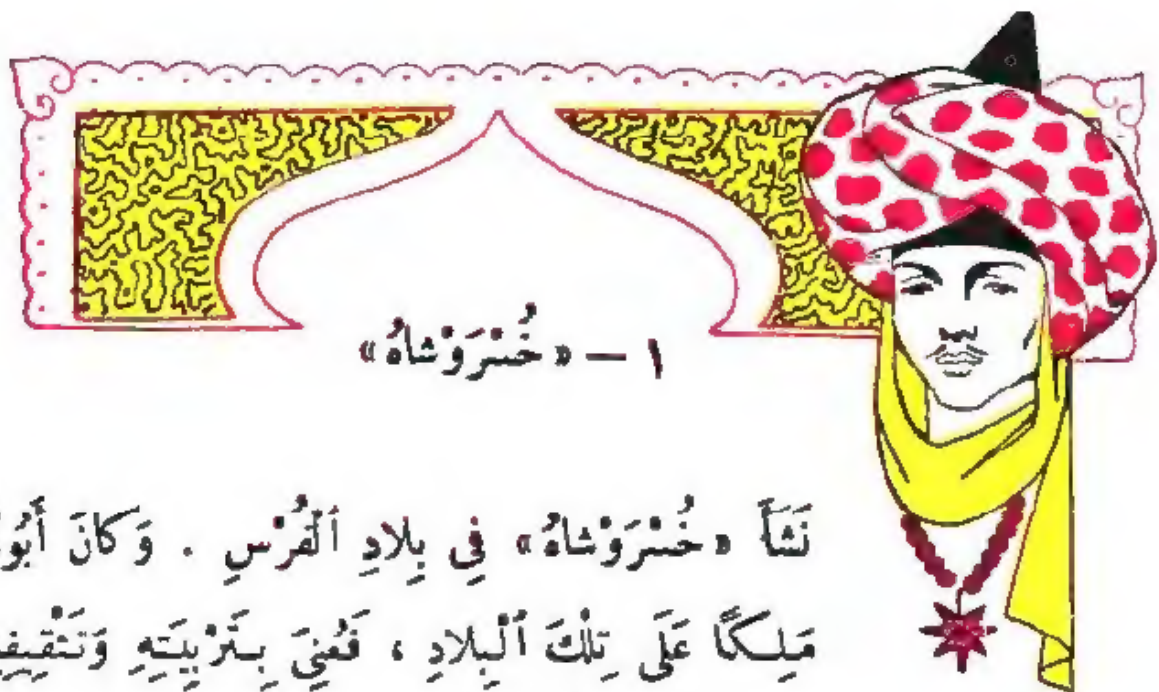 ١ – «خُسْرَوْشاهُ»
نَشَأَ «خُسْرَوْشاهُ» فِي بِلادِ ٱلْفُرْسِ . وَكانَ أَبُو
مَلِكًا عَلَى تِلْكَ ٱلْبِلادِ ، فَعُنِيَ بِتَرْبِيَتِهِ وَتَثْقِيفِ